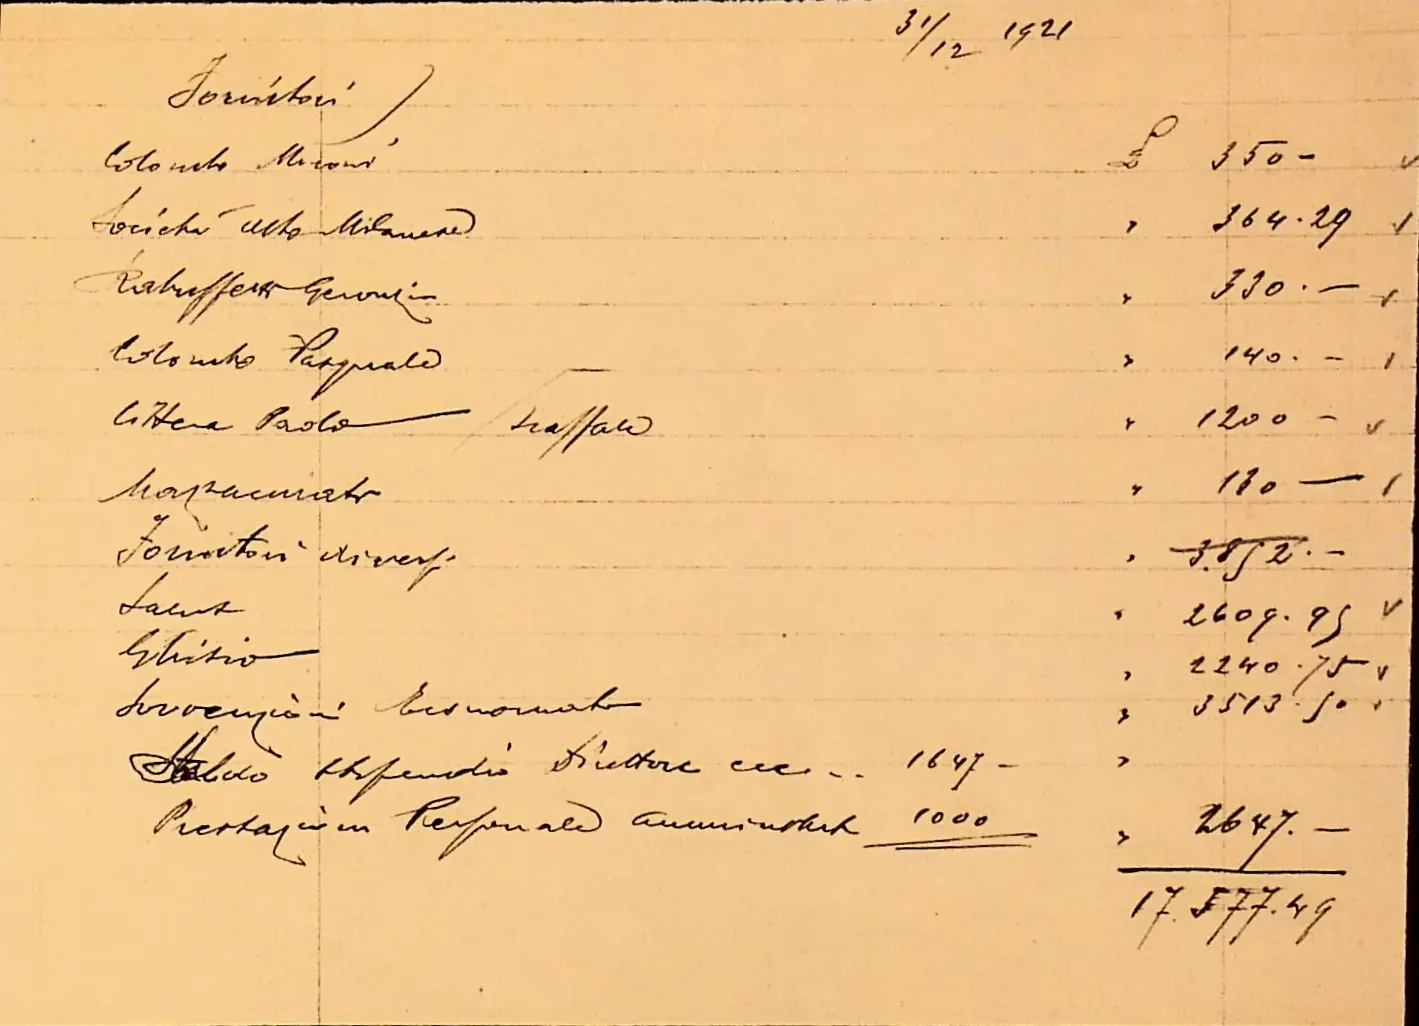 31/12 1921
Fornitori
Colombo Mironi £ 350 -
Società Alto Milanese " 364.29
Rabuffetti Geronzio " 330. -
Colombo Pasquale " 140. -
Cittera Paolo / scaffale " 1200 -
" 130 -
Fornitori diversi " 3.852. -
" 2609.95
Ghisio " 2240.75
Sovvenzioni Economato " 3513.50
Saldo stipendio Direttore ecc... 1647 - "
Prestazioni Personale 1000 " 2647. -
17.377.49